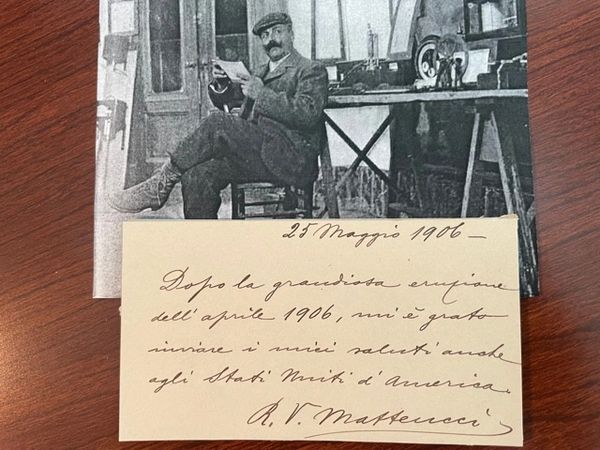 25 Maggio 1906 —
Dopo la grandiosa eruzione
dell' aprile 1906, mi è grato
inviare i miei saluti anche
agli Stati Uniti d'America.
R. V. Matteucci